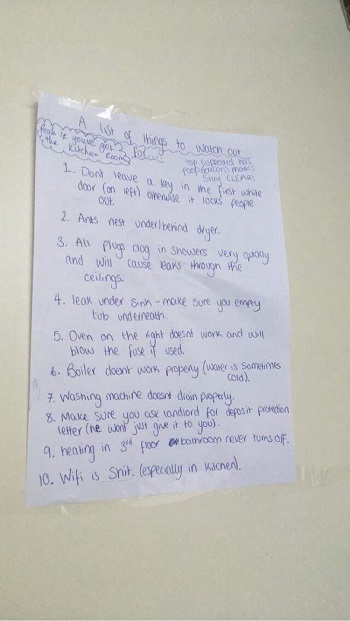 A list of things to watch out
for...
you've got
the kitchen room
top cupboard has
Stay CLEAR!
1. Dont leave a key in the first white
door (on left) otherwise it locks people
out.
2. Ants nest under/behind dryer.
3. All plugs clog in showers very quickly
and will cause leaks through the
ceilings.
4. leak under sink - make sure you empty
tub underneath.
5. Oven on the right doesnt work and will
blow the fuse if used.
6. Boiler doesnt work properly (water is sometimes
cold).
7. Washing machine doesnt drain properly.
8. Make sure you ask landlord for deposit protection
letter (he wont just give it to you).
9. heating in 3rd floor bathroom never turns off.
10. Wifi is Shit. (especially in kitchen).